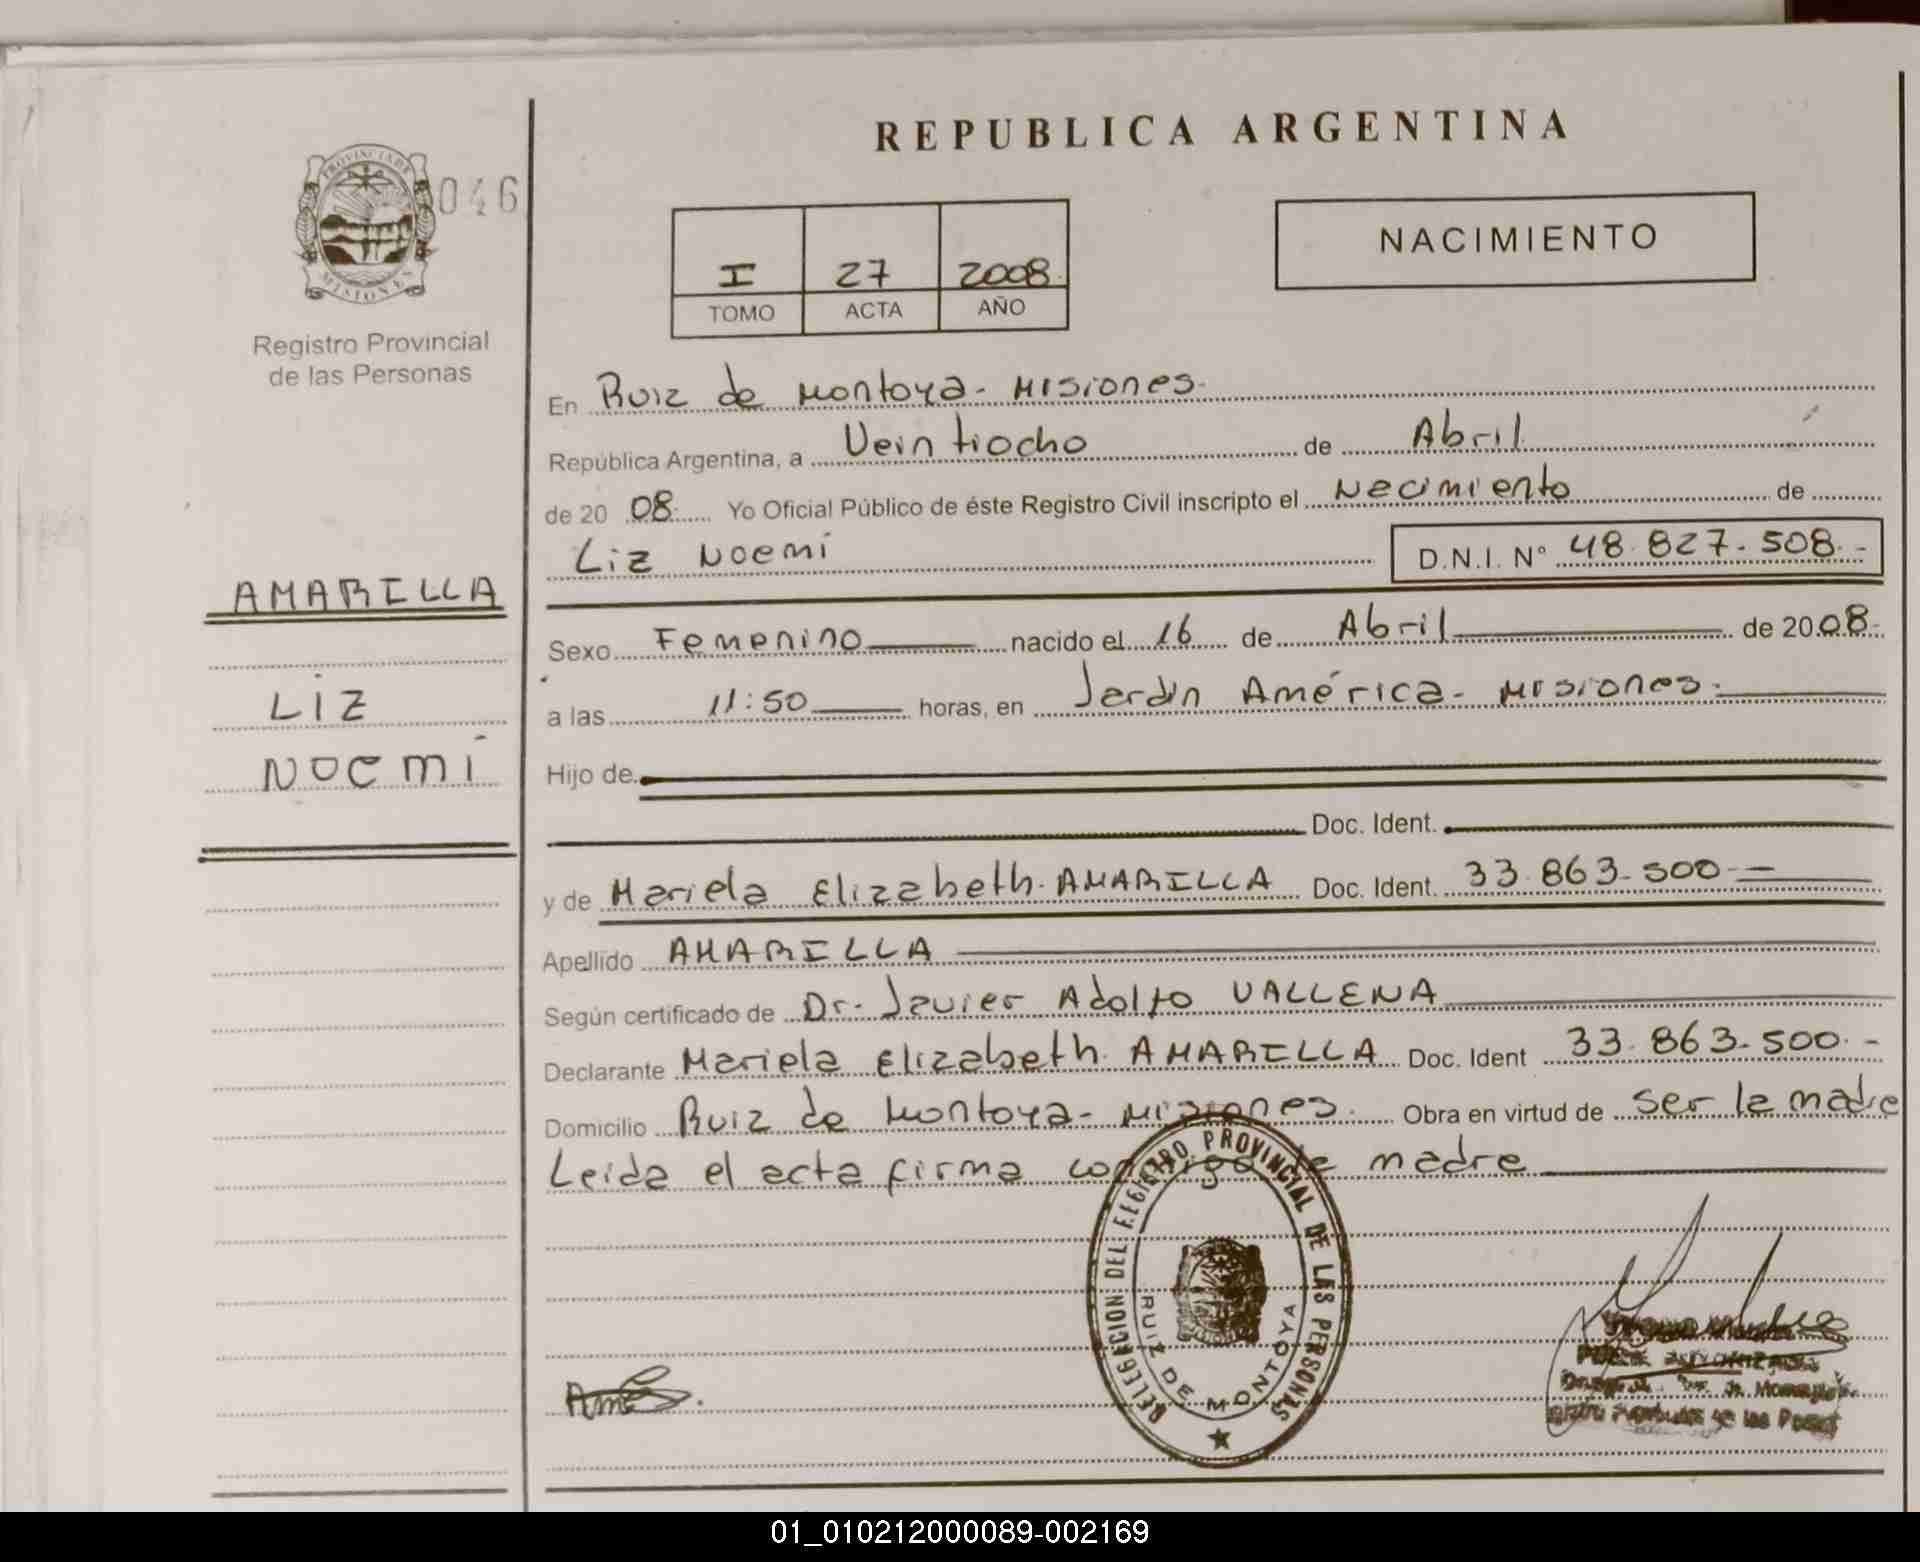 REPUBLICA ARGENTINA
PROVINCIA DE
MISIONES
046
Registro Provincial
de las Personas
I 27 2008
TOMO ACTA AÑO
NACIMIENTO
En Ruiz de Montoya - Misiones.
República Argentina, a Veintiocho de Abril
de 20 08 Yo Oficial Público de éste Registro Civil inscripto el Nacimiento de
Liz Noemí D.N.I. Nº 48.827.508.-
AMARILLA
LIZ
NOEMÍ
Sexo Femenino nacido el 16 de Abril de 2008.
a las 11:50 horas, en Jardín América - Misiones.
Hijo de
Doc. Ident.
y de Mariela Elizabeth AMARILLA Doc. Ident. 33.863.500.-
Apellido AMARILLA
Según certificado de Dr. Javier Adolfo VALLENA
Declarante Mariela Elizabeth AMARILLA Doc. Ident 33.863.500.-
Domicilio Ruiz de Montoya - Misiones. Obra en virtud de ser la madre
Leida el acta firma conmigo la madre
DELEGACION DEL REGISTRO PROVINCIAL DE LAS PERSONAS
RUIZ DE MONTOYA
01_010212000089-002169